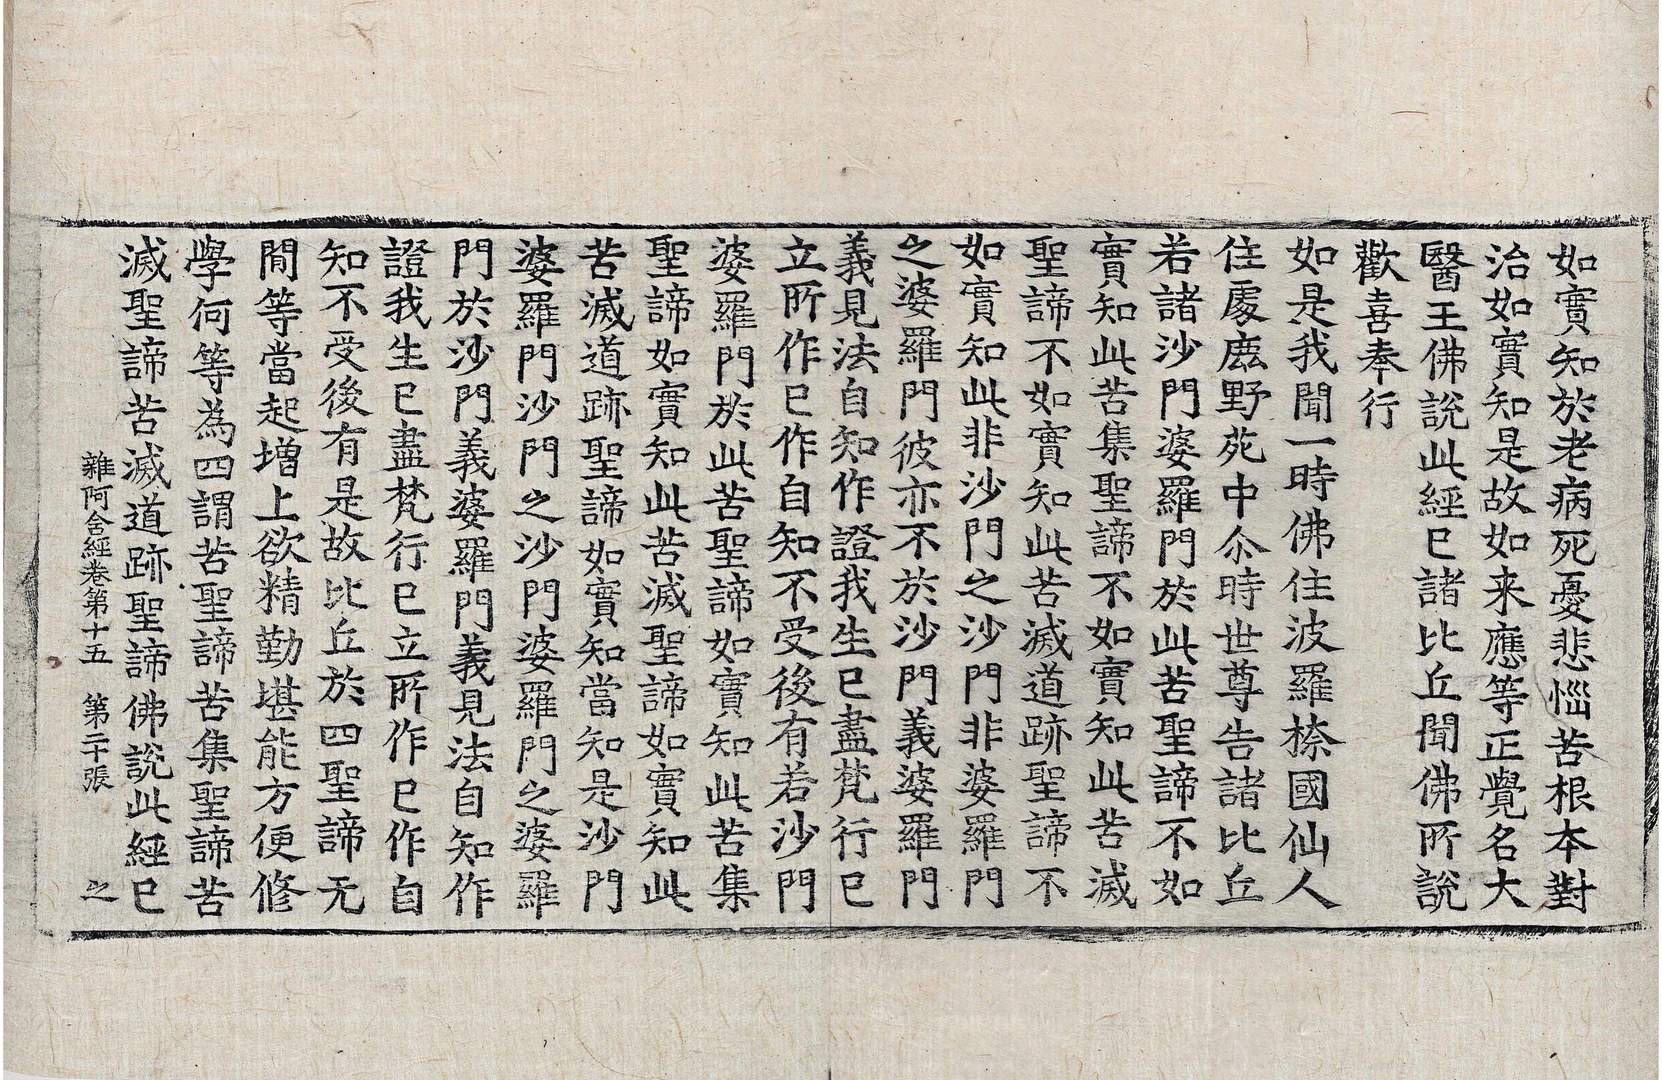 如實知於老病死憂悲惱苦根本對
治如實知是故如来應等正覺名大
醫王佛說此經已諸比丘聞佛所說
歡喜奉行
如是我聞一時佛住波羅㮈國仙人
住處鹿野苑中尒時世尊告諸比丘
若諸沙門婆羅門於此苦聖諦不如
實知此苦集聖諦不如實知此苦滅
聖諦不如實知此苦滅道跡聖諦不
如實知此非沙門之沙門非婆羅門
之婆羅門彼亦不於沙門義婆羅門
義見法自知作證我生已盡梵行已
立所作已作自知不受後有若沙門
婆羅門於此苦聖諦如實知此苦集
聖諦如實知此苦滅聖諦如實知此
苦滅道跡聖諦如實知當知是沙門
婆羅門沙門之沙門婆羅門之婆羅
門於沙門義婆羅門義見法自知作
證我生已盡梵行已立所作已作自
知不受後有是故比丘於四聖諦无
間等當起增上欲精勤堪能方便修
學何等為四謂苦聖諦苦集聖諦苦
滅聖諦苦滅道跡聖諦佛說此經已
雜阿含經卷第十五 第二十張 之